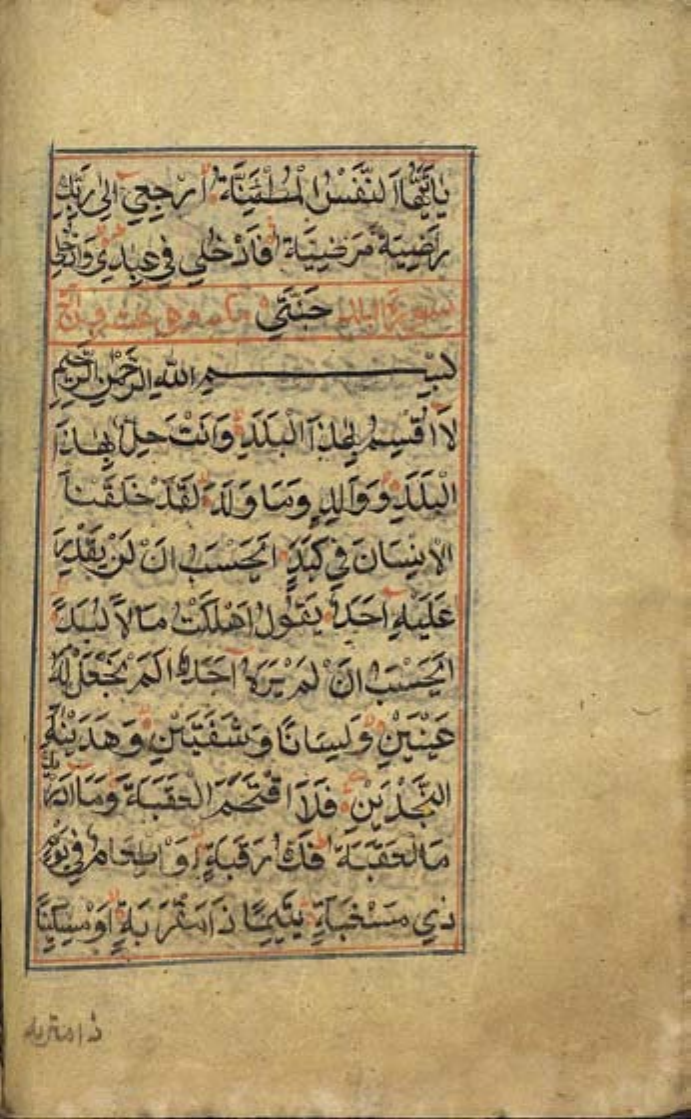 يَاأَيَّتُهَا النَّفْسُ الْمُطْمَئِنَّةُ ارْجِعِي اِلٰى رَبِّكِ
رَاضِيَةً مَرْضِيَّةً فَادْخُلِي فِي عِبَادِي وَادْخُلِي
سورة البلد جَنَّتِي مكية وهي
بِسْــــــمِ اللهِ الرَّحْمٰنِ الرَّحِيمِ
لَا اُقْسِمُ بِهٰذَا الْبَلَدِ وَاَنْتَ حِلٌّ بِهٰذَا
الْبَلَدِ وَوَالِدٍ وَمَا وَلَدَ لَقَدْ خَلَقْنَا
الْاِنْسَانَ فِي كَبَدٍ اَيَحْسَبُ اَنْ لَنْ يَقْدِرَ
عَلَيْهِ اَحَدٌ يَقُولُ اَهْلَكْتُ مَالًا لُبَدًا
اَيَحْسَبُ اَنْ لَمْ يَرَهُ اَحَدٌ اَلَمْ نَجْعَلْ لَهُ
عَيْنَيْنِ وَلِسَانًا وَشَفَتَيْنِ وَهَدَيْنٰهُ
النَّجْدَيْنِ فَلَا اقْتَحَمَ الْعَقَبَةَ وَمَا اَدْرٰيكَ
مَالْعَقَبَةُ فَكُّ رَقَبَةٍ اَوْ اِطْعَامٌ فِي يَوْمٍ
ذِي مَسْغَبَةٍ يَتِيمًا ذَا مَقْرَبَةٍ اَوْ مِسْكِينًا
ذا متربه